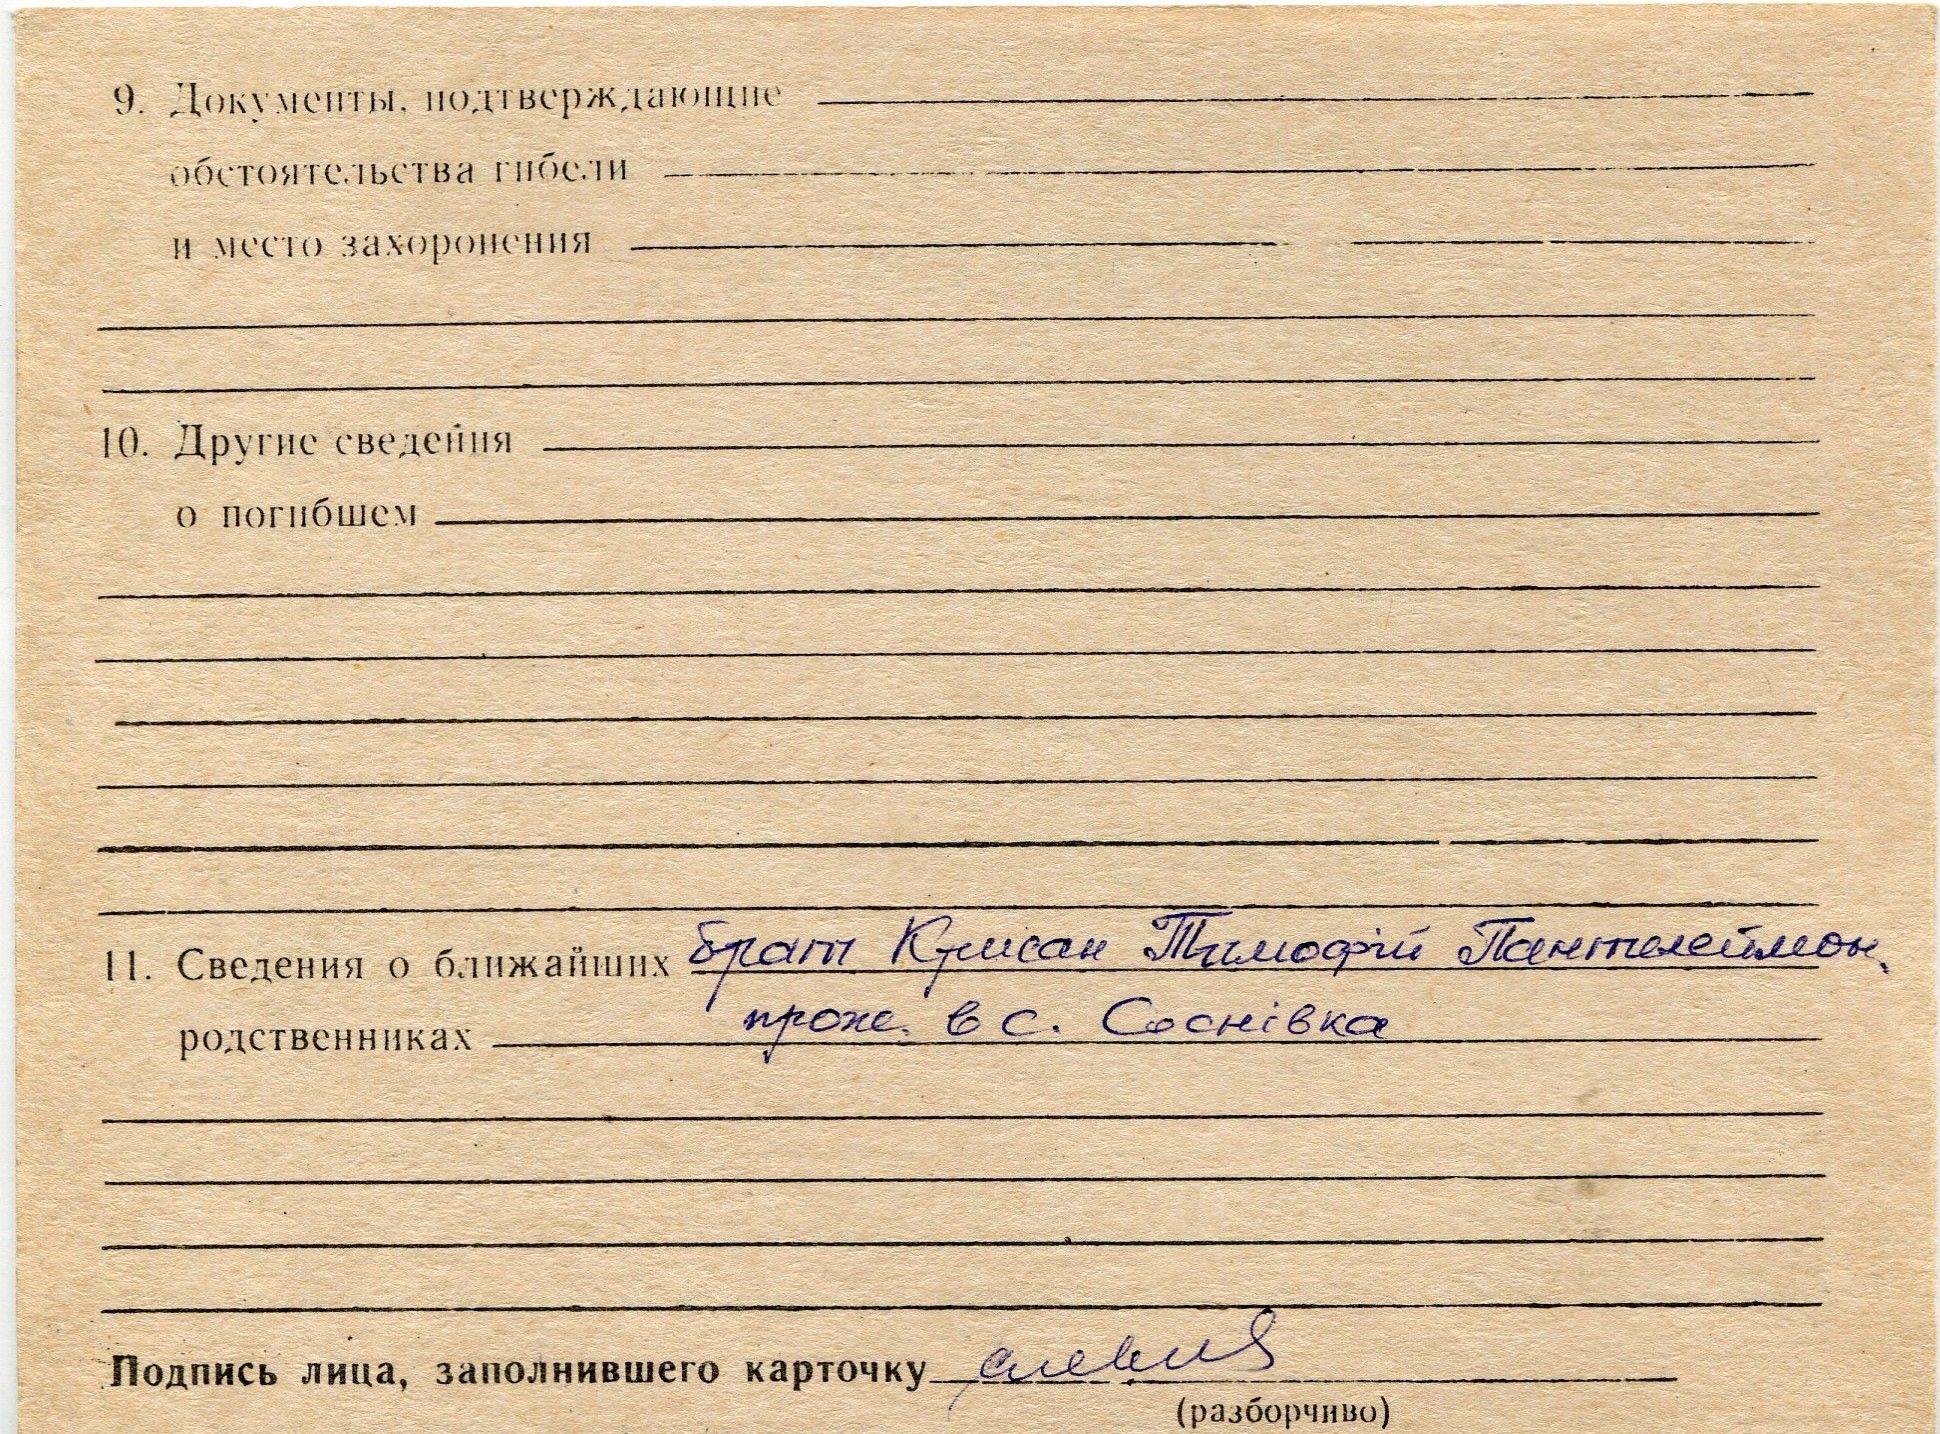 9. Документы, подтверждающие
обстоятельства гибели
и место захоронения
10. Другие сведения
о погибшем
11. Сведения о ближайших брат Крисан Тимофій Пантелеймон.
родственниках прож. в с. Соснівка
Подпись лица, заполнившего карточку
(разборчиво)